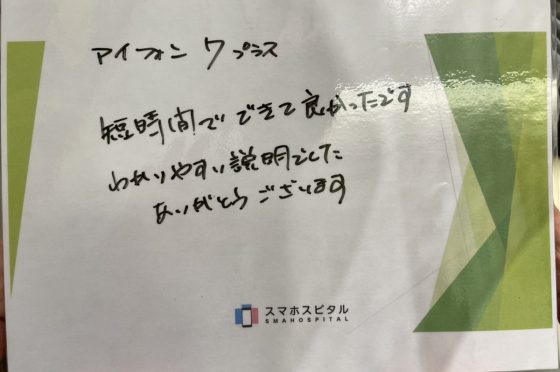 アイフォン 7 プラス
短時間でできて良かったです
わかりやすい説明でした
ありがとうございます
スマホスピタル
SMAHOSPITAL